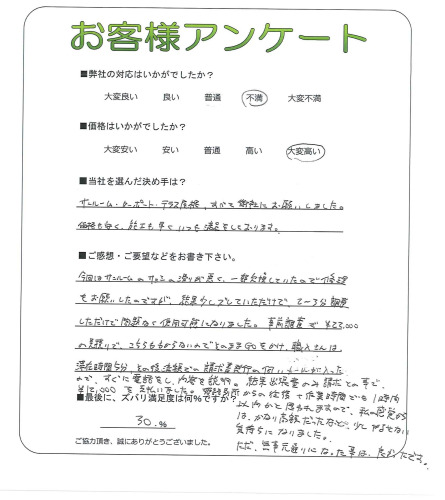 お客様アンケート
■弊社の対応はいかがでしたか？
大変良い 良い 普通 不満 大変不満
■価格はいかがでしたか？
大変安い 安い 普通 高い 大変高い
■当社を選んだ決め手は？
サンルーム・カーポート・テラス屋根、すべて御社にお願いしました。
価格も安く、施工も早く いつも満足をしております。
■ご感想・ご要望などをお書き下さい。
今回はサンルームのサッシの滑りが悪く、一部交換していたので修理
をお願いしたのですが、結果少しズレていただけで、2〜3分調整
しただけで問題なく使用可能になりました。事前調査で¥23,000
の見積りで、こちらも分からないのでそのままGOをかけ、職人さんは
滞在時間5分、その後法額での請求書発行の伺いメールが入った
ので、すぐに電話をし、内容を説明。結果出張費のみ請求との事で、
¥12,000を支払いました。 からの往復＋作業時間でも1時間
■最後に、ズバリ満足度は何％ですか？
以内かと思われますので、私の感覚から
は、かなり高額だったなと。少しやるせない
30.％
気持ちになりました。
ご協力頂き、誠にありがとうございました。
ただ、無事元通りになった事は、良かったです。